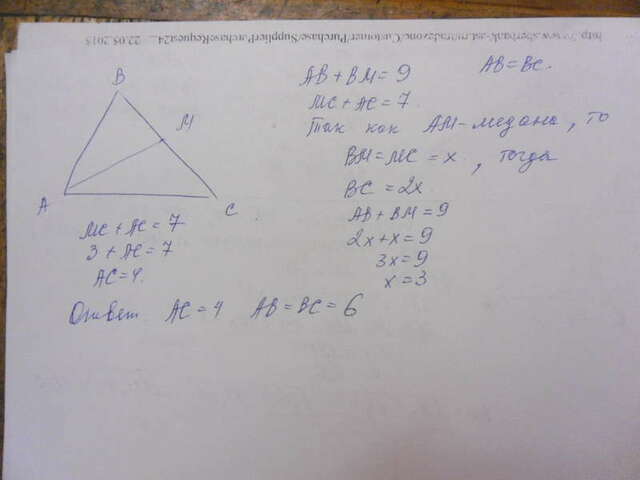 http://www.sberbank-ast.ru/tradezone/Customer/Purchase/SupplierPurchaseRequest24... 22.05.2015
B
M
A
C
AB + BM = 9 AB = BC.
MC + AC = 7.
Так как AM - медана, то
BM = MC = x, тогда
BC = 2x.
AB + BM = 9
2x + x = 9
3x = 9
x = 3
MC + AC = 7
3 + AC = 7
AC = 4.
Ответ AC = 4 AB = BC = 6